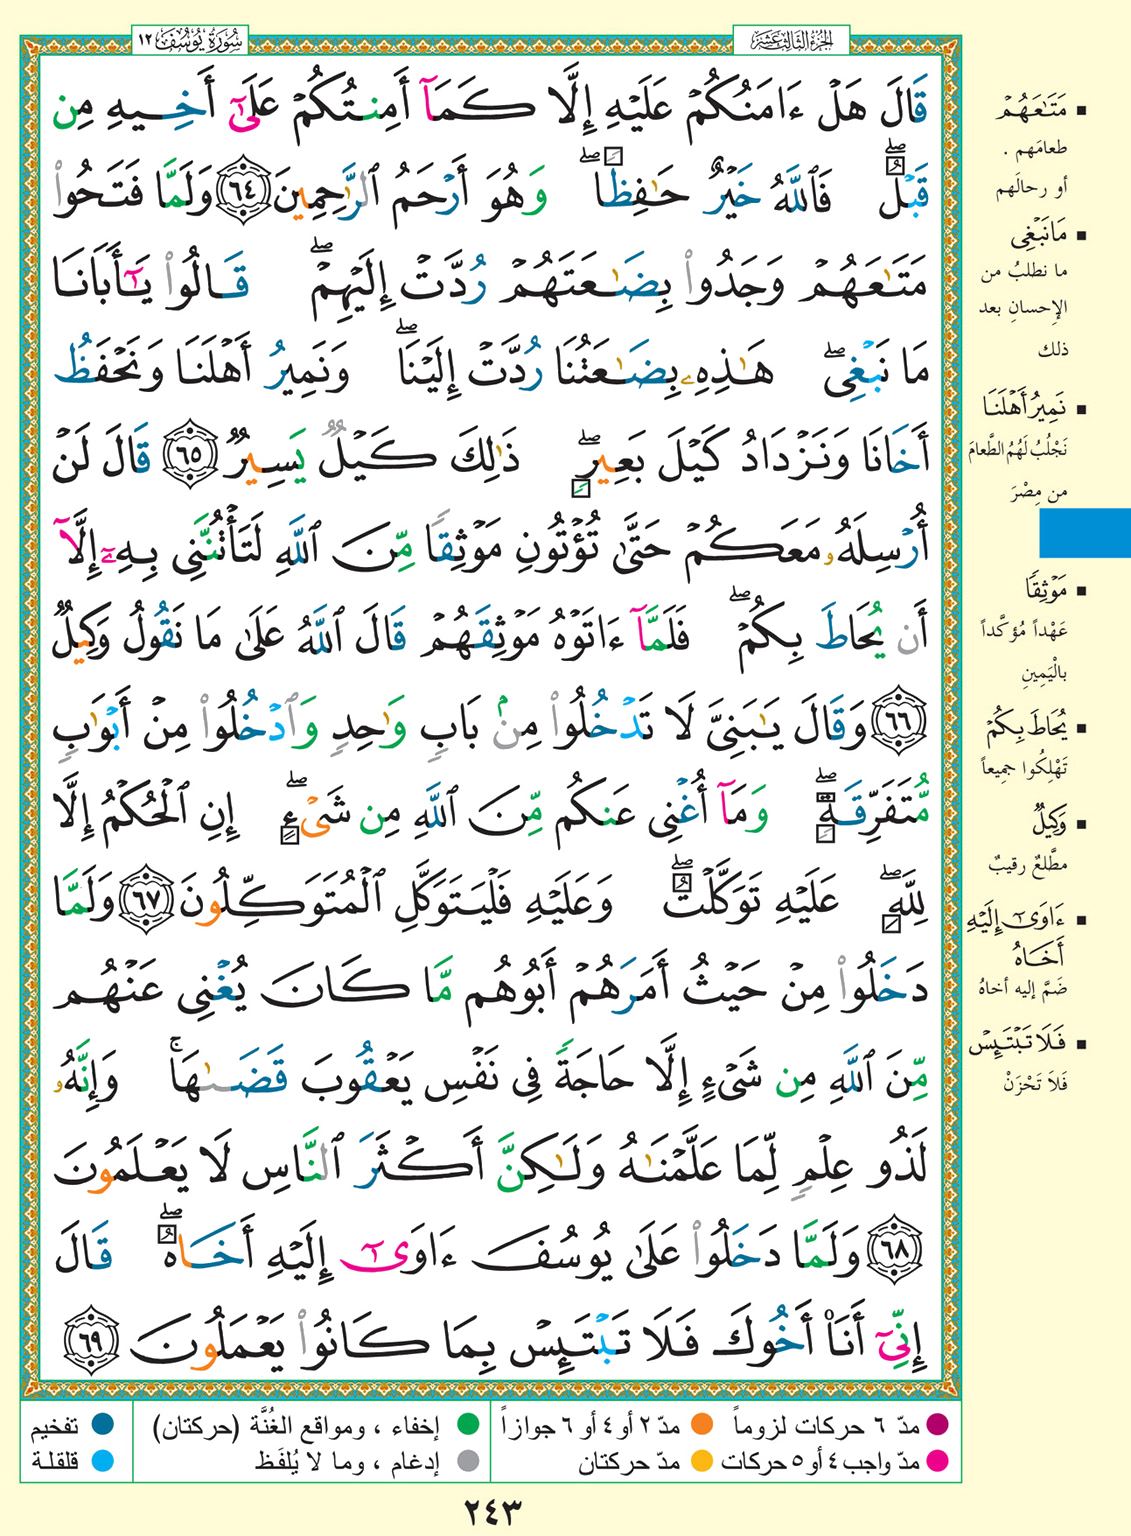 الجزء الثالث عشر
سُورَة يُوسُف ١٢
قَالَ هَلْ ءَامَنُكُمْ عَلَيْهِ إِلَّا كَمَآ أَمِنتُكُمْ عَلَىٰٓ أَخِيهِ مِن
قَبْلُ ۖ فَٱللَّهُ خَيْرٌ حَـٰفِظًا ۖ وَهُوَ أَرْحَمُ ٱلرَّٰحِمِينَ ٦٤ وَلَمَّا فَتَحُوا۟
مَتَـٰعَهُمْ وَجَدُوا۟ بِضَـٰعَتَهُمْ رُدَّتْ إِلَيْهِمْ ۖ قَالُوا۟ يَـٰٓأَبَانَا
مَا نَبْغِى ۖ هَـٰذِهِۦ بِضَـٰعَتُنَا رُدَّتْ إِلَيْنَا ۖ وَنَمِيرُ أَهْلَنَا وَنَحْفَظُ
أَخَانَا وَنَزْدَادُ كَيْلَ بَعِيرٍ ۖ ذَٰلِكَ كَيْلٌ يَسِيرٌ ٦٥ قَالَ لَنْ
أُرْسِلَهُۥ مَعَكُمْ حَتَّىٰ تُؤْتُونِ مَوْثِقًا مِّنَ ٱللَّهِ لَتَأْتُنَّنِى بِهِۦٓ إِلَّآ
أَن يُحَاطَ بِكُمْ ۖ فَلَمَّآ ءَاتَوْهُ مَوْثِقَهُمْ قَالَ ٱللَّهُ عَلَىٰ مَا نَقُولُ وَكِيلٌ
٦٦ وَقَالَ يَـٰبَنِىَّ لَا تَدْخُلُوا۟ مِنۢ بَابٍ وَٰحِدٍ وَٱدْخُلُوا۟ مِنْ أَبْوَٰبٍ
مُّتَفَرِّقَةٍ ۖ وَمَآ أُغْنِى عَنكُم مِّنَ ٱللَّهِ مِن شَىْءٍ ۖ إِنِ ٱلْحُكْمُ إِلَّا
لِلَّهِ ۖ عَلَيْهِ تَوَكَّلْتُ ۖ وَعَلَيْهِ فَلْيَتَوَكَّلِ ٱلْمُتَوَكِّلُونَ ٦٧ وَلَمَّا
دَخَلُوا۟ مِنْ حَيْثُ أَمَرَهُمْ أَبُوهُم مَّا كَانَ يُغْنِى عَنْهُم
مِّنَ ٱللَّهِ مِن شَىْءٍ إِلَّا حَاجَةً فِى نَفْسِ يَعْقُوبَ قَضَىٰهَا ۚ وَإِنَّهُۥ
لَذُو عِلْمٍ لِّمَا عَلَّمْنَـٰهُ وَلَـٰكِنَّ أَكْثَرَ ٱلنَّاسِ لَا يَعْلَمُونَ
٦٨ وَلَمَّا دَخَلُوا۟ عَلَىٰ يُوسُفَ ءَاوَىٰٓ إِلَيْهِ أَخَاهُ ۖ قَالَ
إِنِّىٓ أَنَا۠ أَخُوكَ فَلَا تَبْتَئِسْ بِمَا كَانُوا۟ يَعْمَلُونَ ٦٩
▪ مَتَـٰعَهُمْ
طعامَهم .
أو رحالَهم
▪ مَا نَبْغِى
ما نطلبُ من
الإحسانِ بعد
ذلك
▪ نَمِيرُ أَهْلَنَا
نَجْلُبُ لَهُمُ الطَّعامَ
من مِصْرَ
▪ مَوْثِقًا
عَهْداً مُؤكَّداً
بالْيَمِينِ
▪ يُحَاطَ بِكُمْ
تَهْلِكُوا جميعاً
▪ وَكِيلٌ
مطَّلعٌ رقيبٌ
▪ ءَاوَىٰٓ إِلَيْهِ
أَخَاهُ
ضَمَّ إليه أخاهُ
▪ فَلَا تَبْتَئِسْ
فَلاَ تَحْزَنْ
مدّ ٦ حركات لزوماً
مدّ ٢ أو ٤ أو ٦ جوازاً
إخفاء ، ومواقع الغُنَّة (حركتان)
تفخيم
مدّ واجب ٤ أو ٥ حركات
مدّ حركتان
إدغام ، وما لا يُلفَظ
قلقلة
٢٤٣